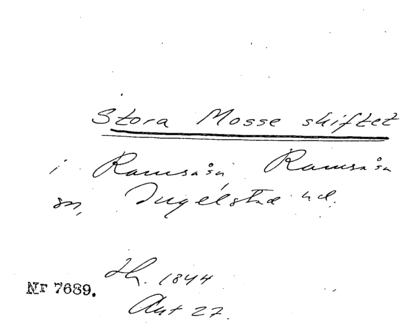 Stora Mosse skiftet
i Ramsåsa, Ramsåsa
sn, Ingelstad hd.
Lh. 1844
Akt 27.
Nr 7689.